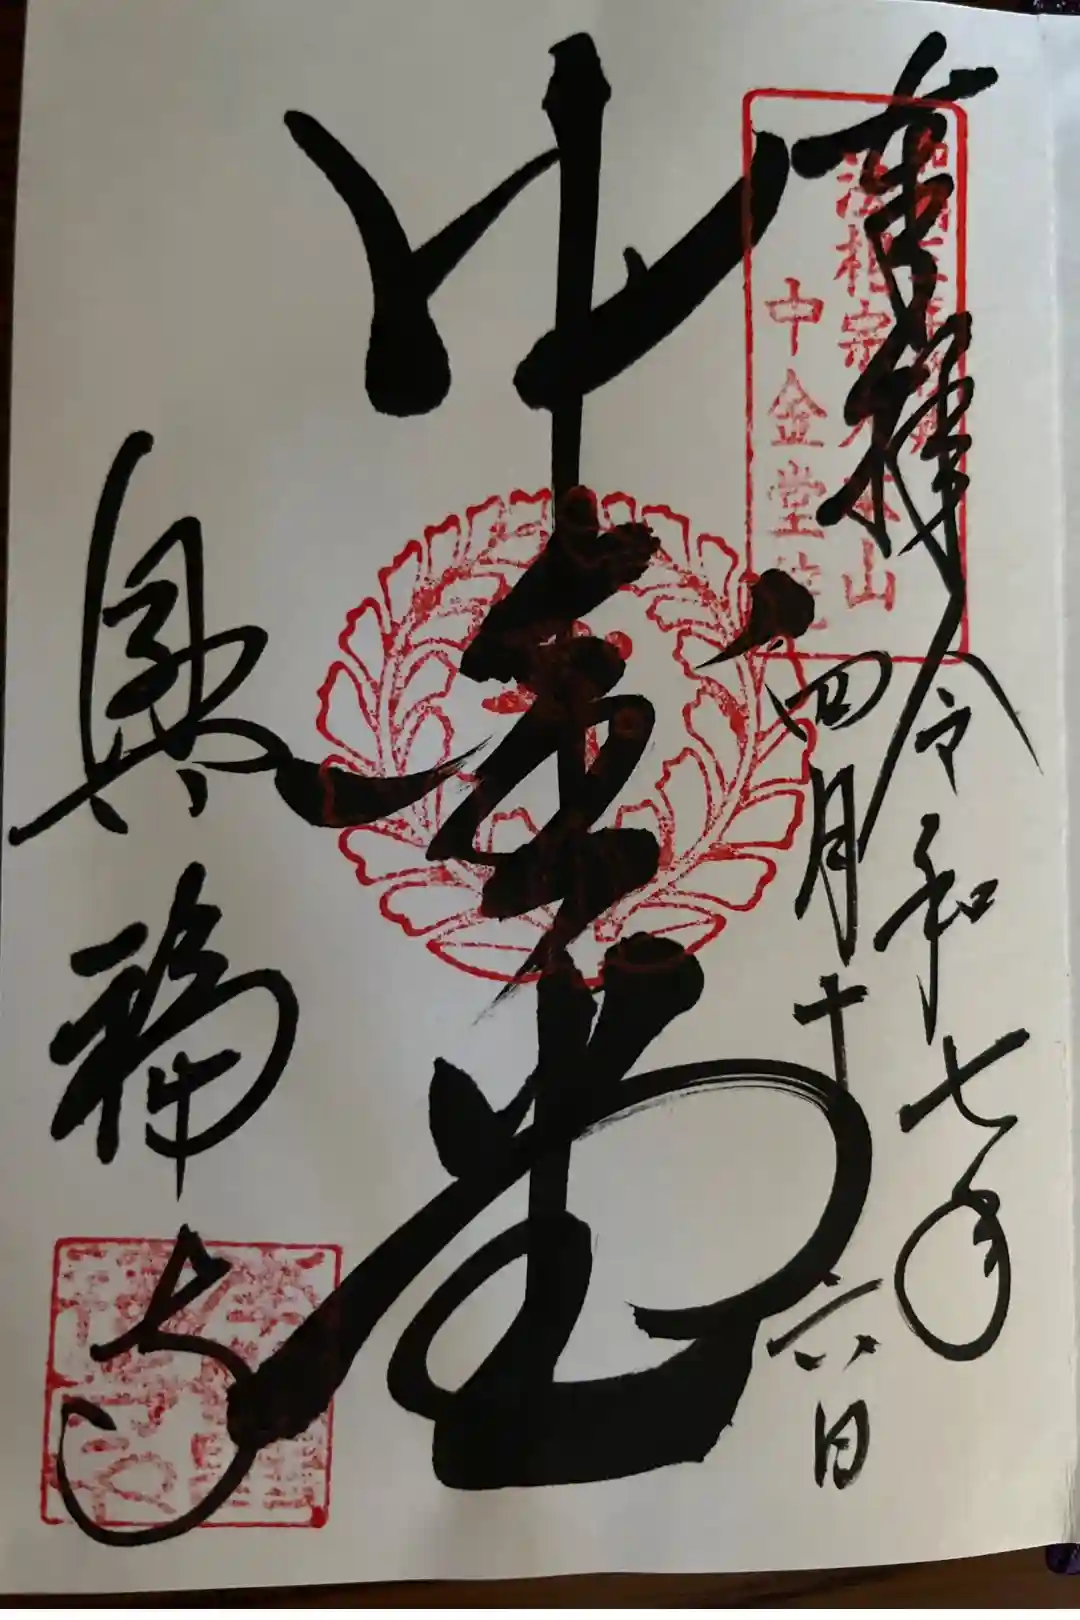 奉拝 令和七年
四月十六日
法相宗大本山
中金堂
中金堂
興福寺